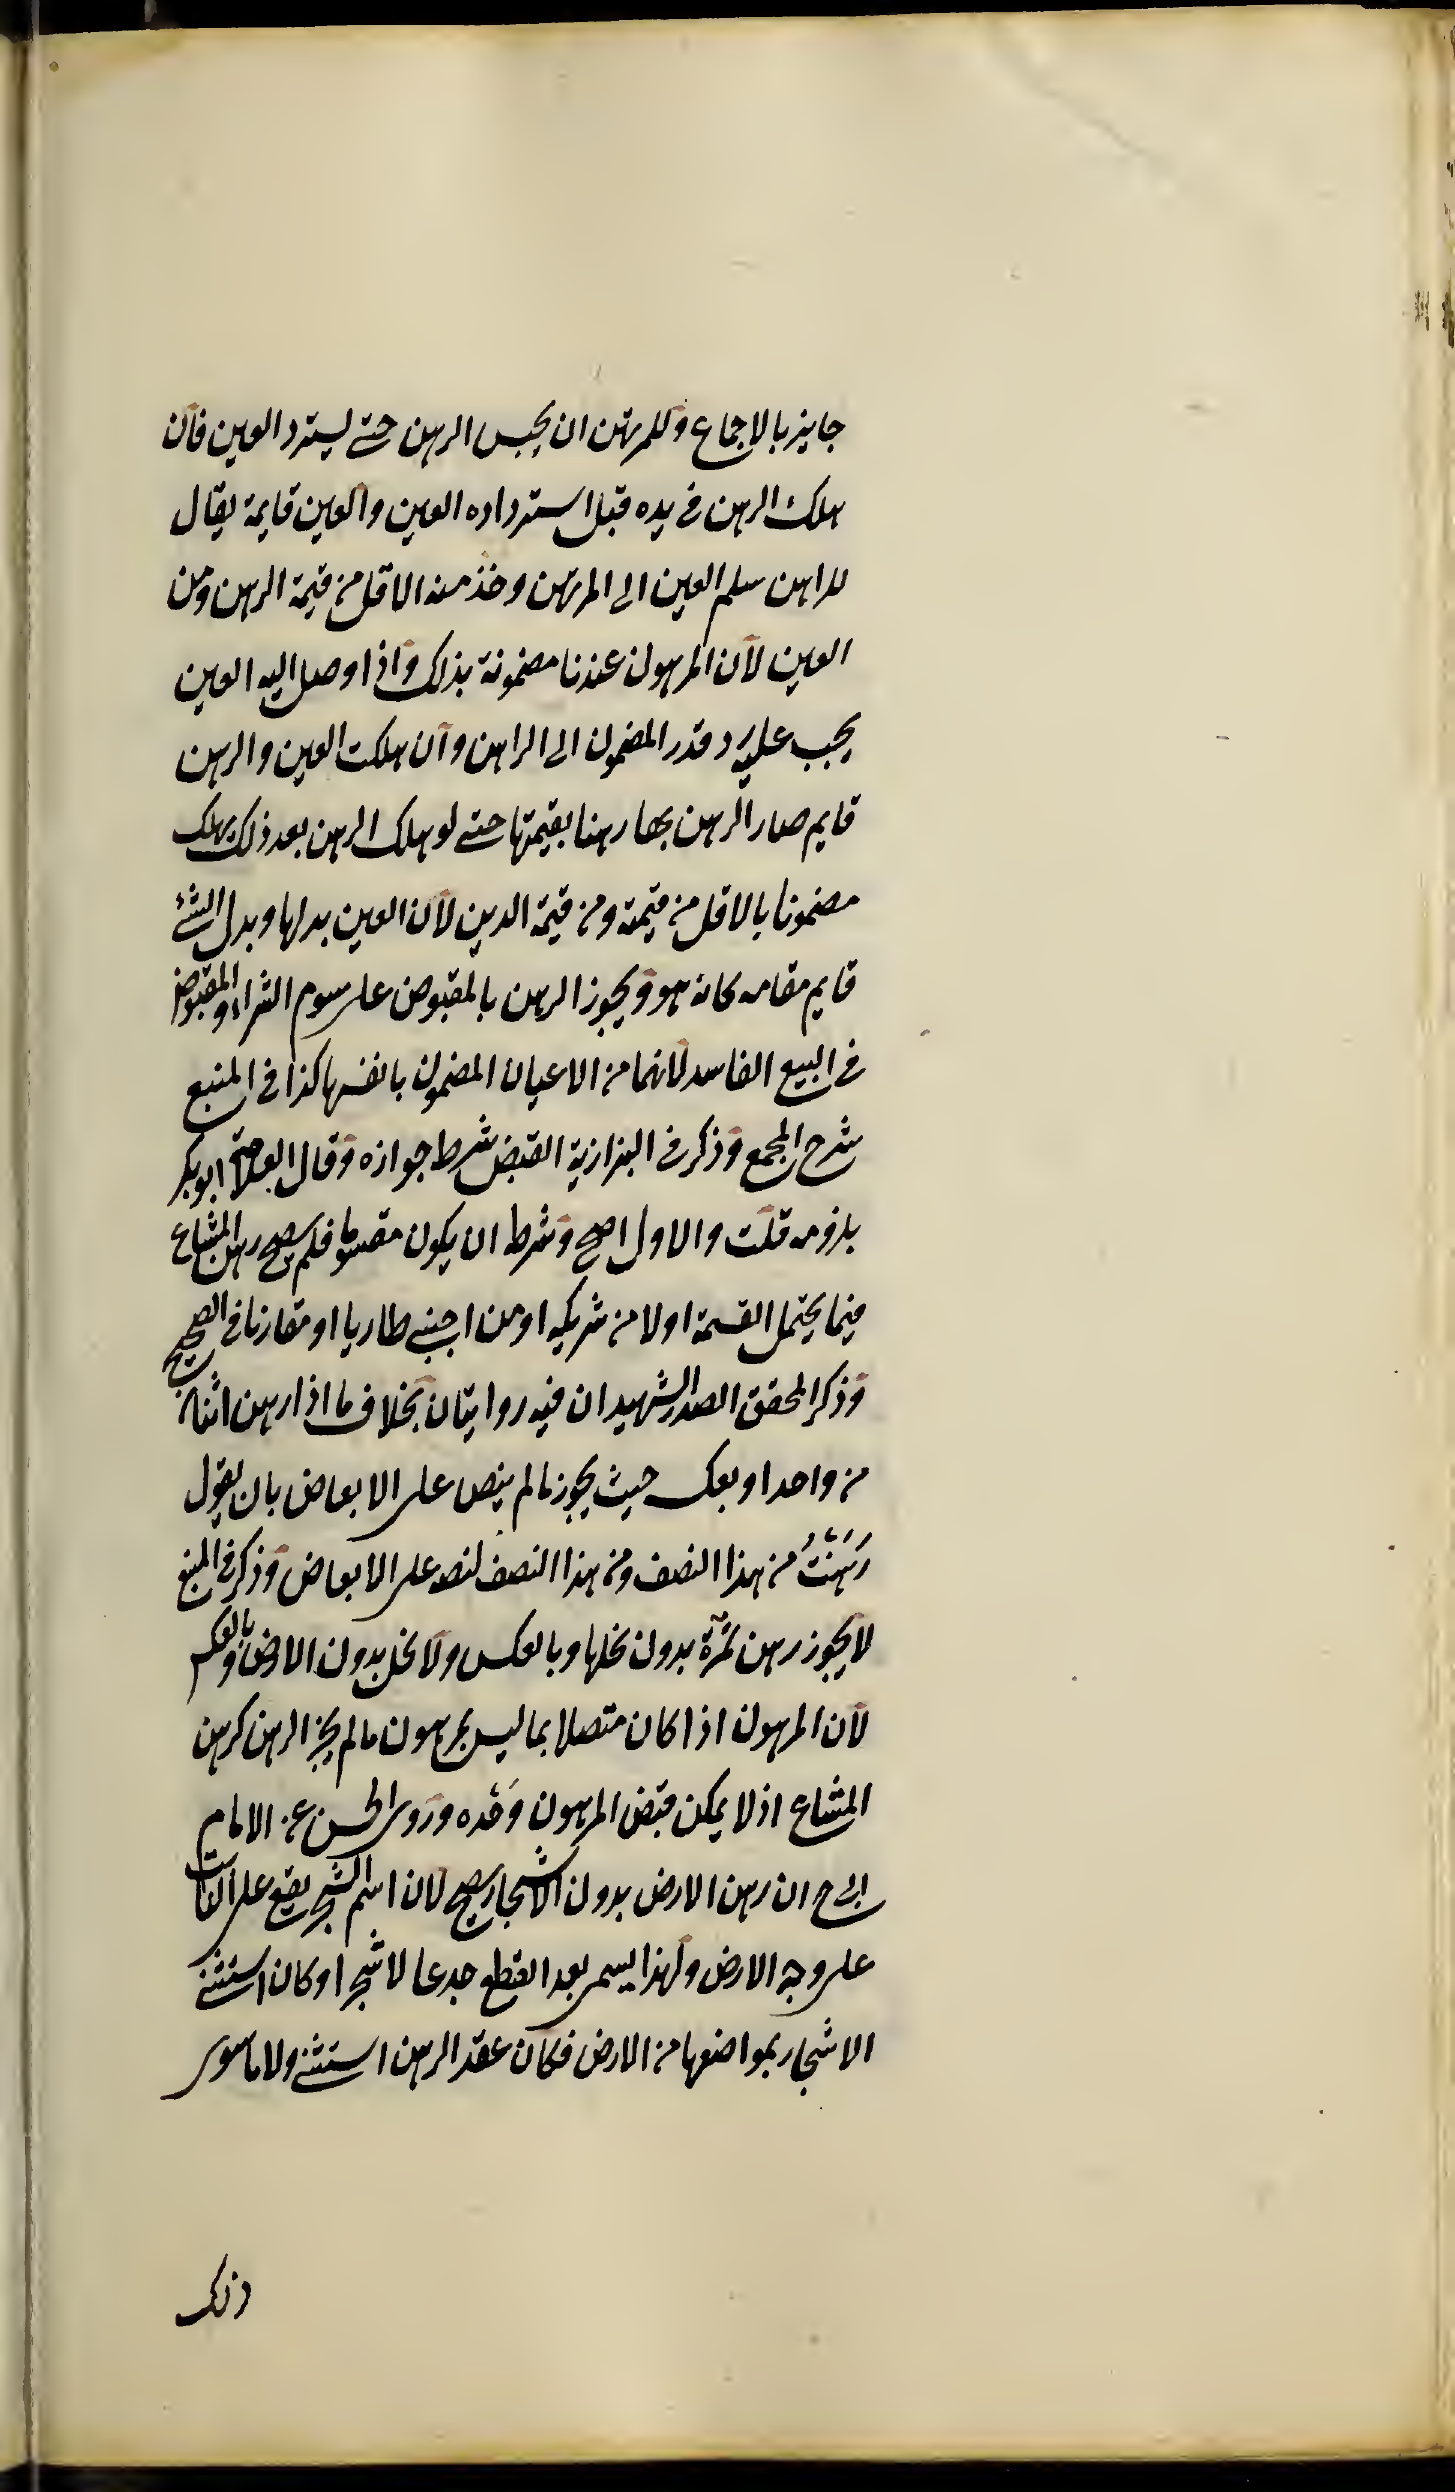 جايز بالاجماع وللمرتهن ان يحبس الرهن حتى يسترد العين فان
هلك الرهن في يده قبل استرداده العين والعين قايمة يقال
للراهن سلم العين الى المرتهن وخذ منه الاقل من قيمة الرهن ومن
العين لان المرهون عندنا مضمونة بذلك واذا وصل اليه العين
يجب عليه رد قدر المضمون الى الراهن وان هلكت العين والرهن
قايم صار الرهن بها رهنا بقيمتها حتى لو هلك الرهن بعد ذلك يهلك
مضمونا بالاقل من قيمته ومن قيمة الدين لان العين بدلها وبدل الشئ
قايم مقامه كانه هو ويجوز الرهن بالمقبوض على سوم الشراء والمقبوض
في البيع الفاسد لانهما من الاعيان المضمون بانفسها كذا في المنبع
شرح المجمع وذكر في البزازية القبض شرط جوازه وقال ابو بكر
بلزومه قلت والاول اصح وشرط ان يكون مقسوما فلم يصح رهن المشاع
فيما يحتمل القسمة اولا من شريكه او من اجنبي طاريا او مقارنا في الصحيح
وذكر المحقق الصدر الشهيد ان فيه روايتان بخلاف ما اذا رهن اثنان
من واحد او بعكسه حيث يجوز ما لم ينص على الابعاض بان يقول
رَهَنْتُ من هذا النصف ومن هذا النصف لنصه على الابعاض وذكر في المنبع
لا يجوز رهن ثمرة بدون نخلها وبالعكس ولا نخل بدون الارض وبالعكس
لان المرهون اذا كان متصلا بما ليس بمرهون ما لم يجز الرهن كرهن
المشاع اذ لا يمكن قبض المرهون وَحْده وروى الحسن عن الامام
ان رهن الارض بدون الاشجار يصح لان اسم الشجر يقع على النابت
على وجه الارض ولهذا يسمى بعد القطع جدعا لا شجرا وكان استثنى
الاشجار بمواضعها من الارض فكان عقد الرهن استثنى ولا ما سوى
ذلك